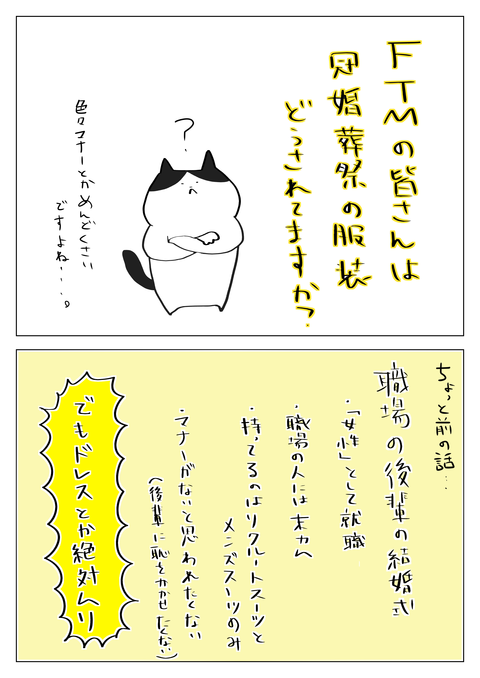 FTMの皆さんは
冠婚葬祭の服装
どうされてますか?
?
色々マナーとかめんどくさい
ですよね・・・。
ちょっと前の話…
職場の後輩の結婚式
・「女性」として就職
・職場の人には未カム
・持ってるのはリクルートスーツと
メンズスーツのみ
・マナーがないと思われたくない
(後輩に恥をかかせたくない)
でもドレスとか絶対ムリ